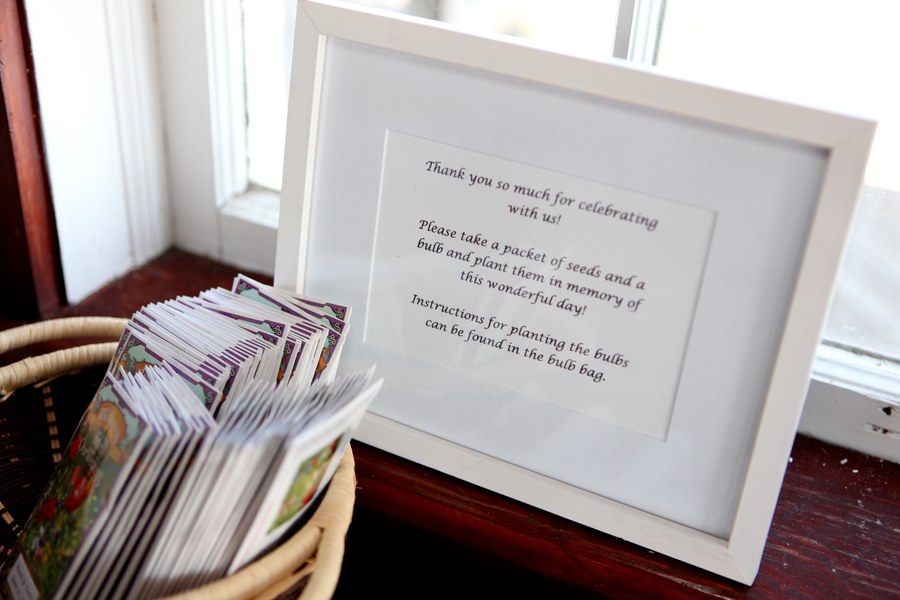 Thank you so much for celebrating
with us!
Please take a packet of seeds and a
bulb and plant them in memory of
this wonderful day!
Instructions for planting the bulbs
can be found in the bulb bag.